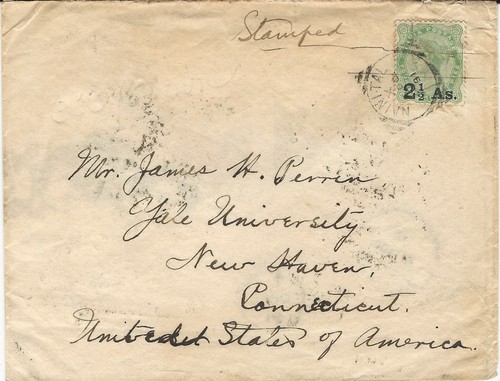 Stamped
2½ As.
NAINI TAL
Mr. James H. Perrin
Yale University
New Haven,
Connecticut.
United States of America.